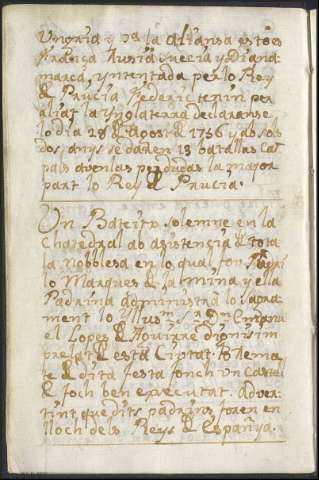 Ungria y Ja la aliansa est es
França Russia Suecia y Dina-
marca, yntentada per lo Rey
de Prucia Federic tenin per
aliat la Ynglaterra declaranse
lo dia 28 de Agost de 1756 y ab sos
dos anys se daren 13 batallas Cam
pals avenlas perdudas la major
part lo Rey de Prucia.
Un Bateitx solemne en la
Chatedral ab asistencia de tota
la Noblesa en lo qual fou Padri
lo Marques de la Mina y ella
Padrina administra lo Sagra-
ment lo Yllusm. Sr. Dn.
el Lopes de Aguirre dignisim
prelat de esta Ciutat. Rema-
te de dita festa fonch un Castell
de foch ben executat. Adver-
tint que dits padrins foren en
lloch dels Reys de España.